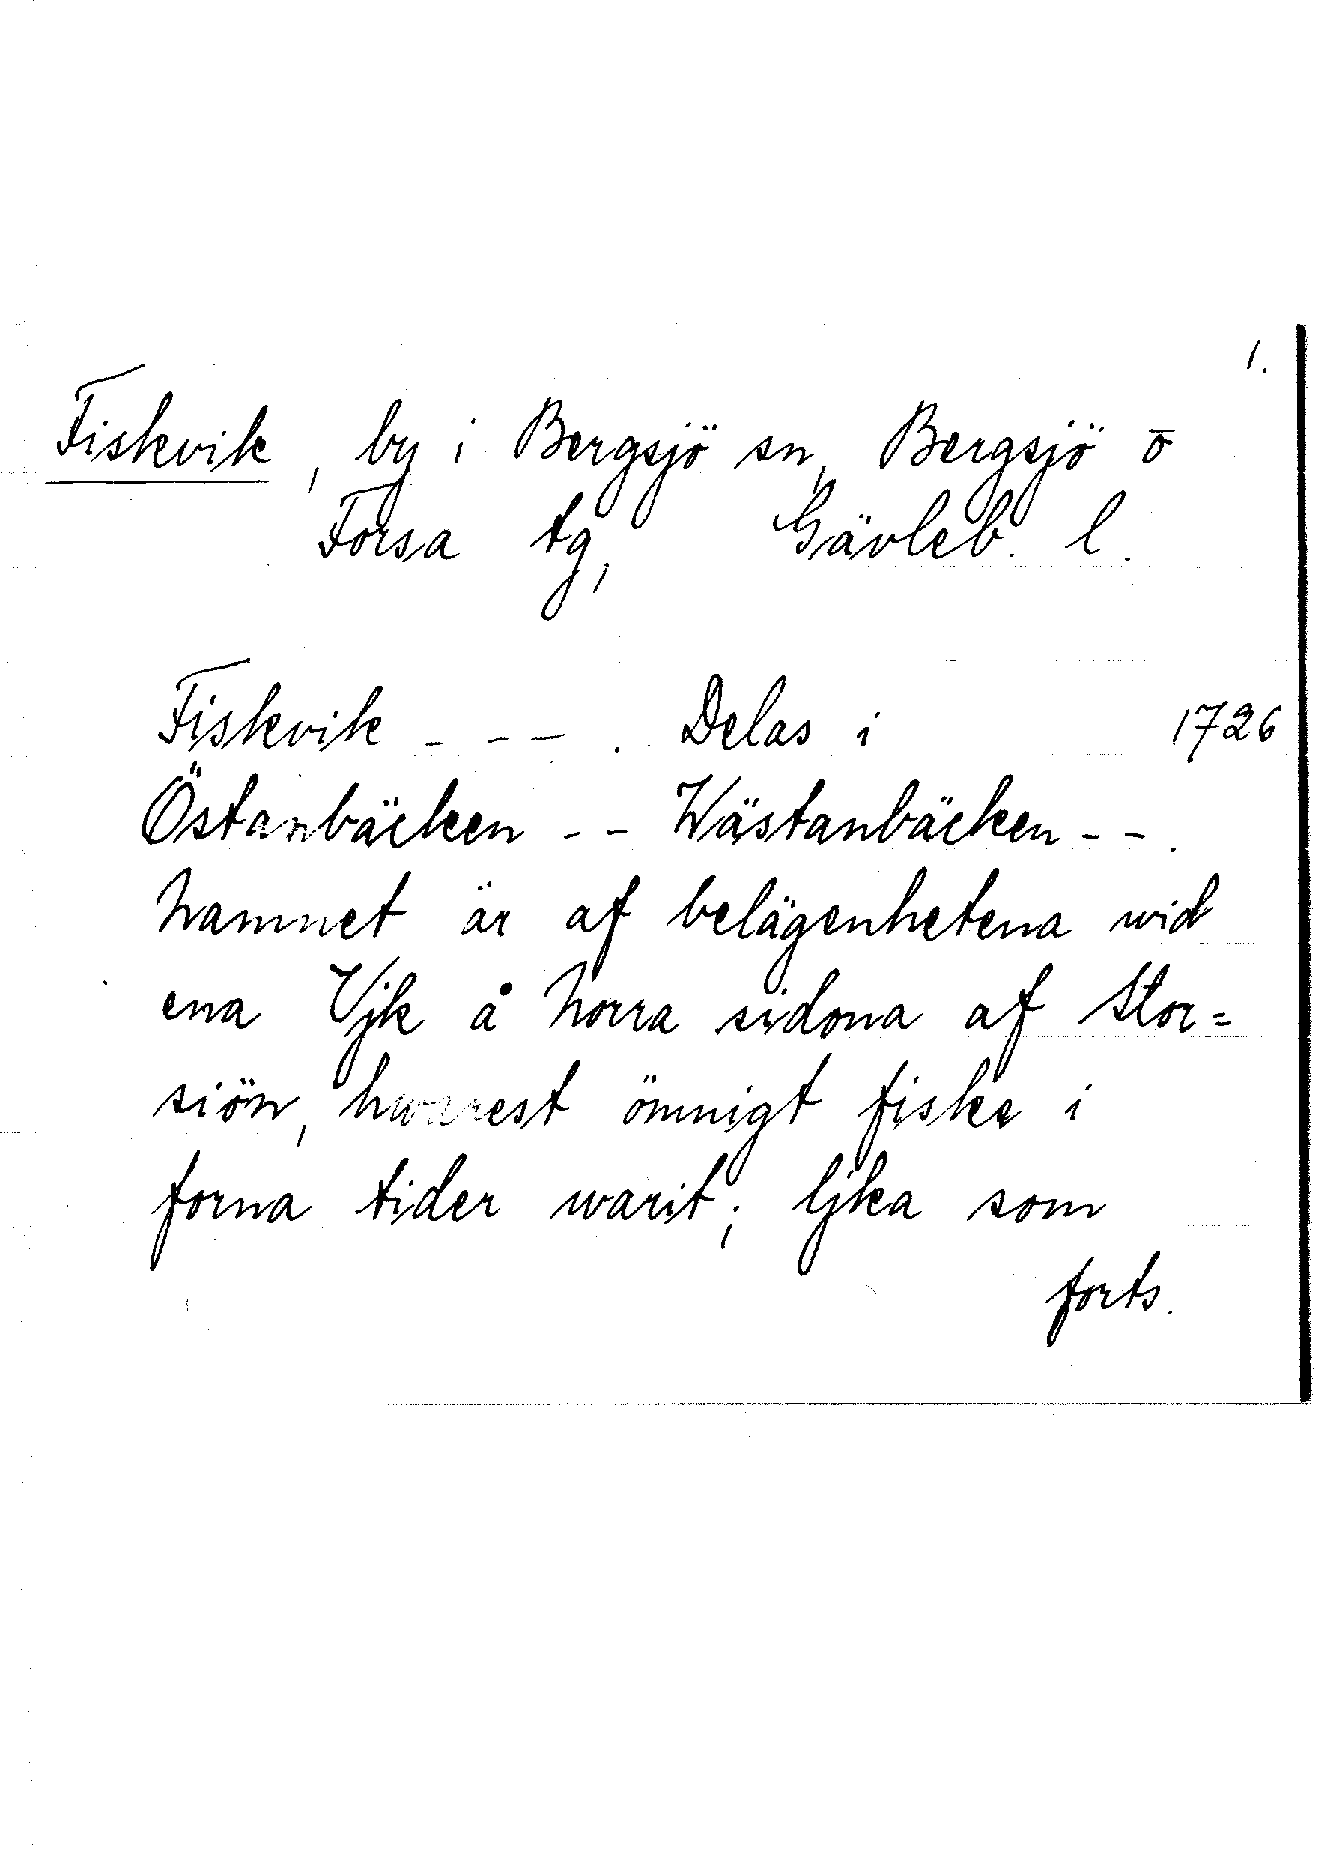 1.
Fiskvik, by i Bergsjö sn, Bergsjö o
Forsa tg, Gävleb. l.
Fiskvik - - - . Delas i 1726
Östanbäcken - - Wästanbäcken - - .
Namnet är af belägenhetena wid
ena Vjk å Norra sidona af Stor=
siön, hwarest ömnigt fiske i
forna tider warit; ljka som
forts.